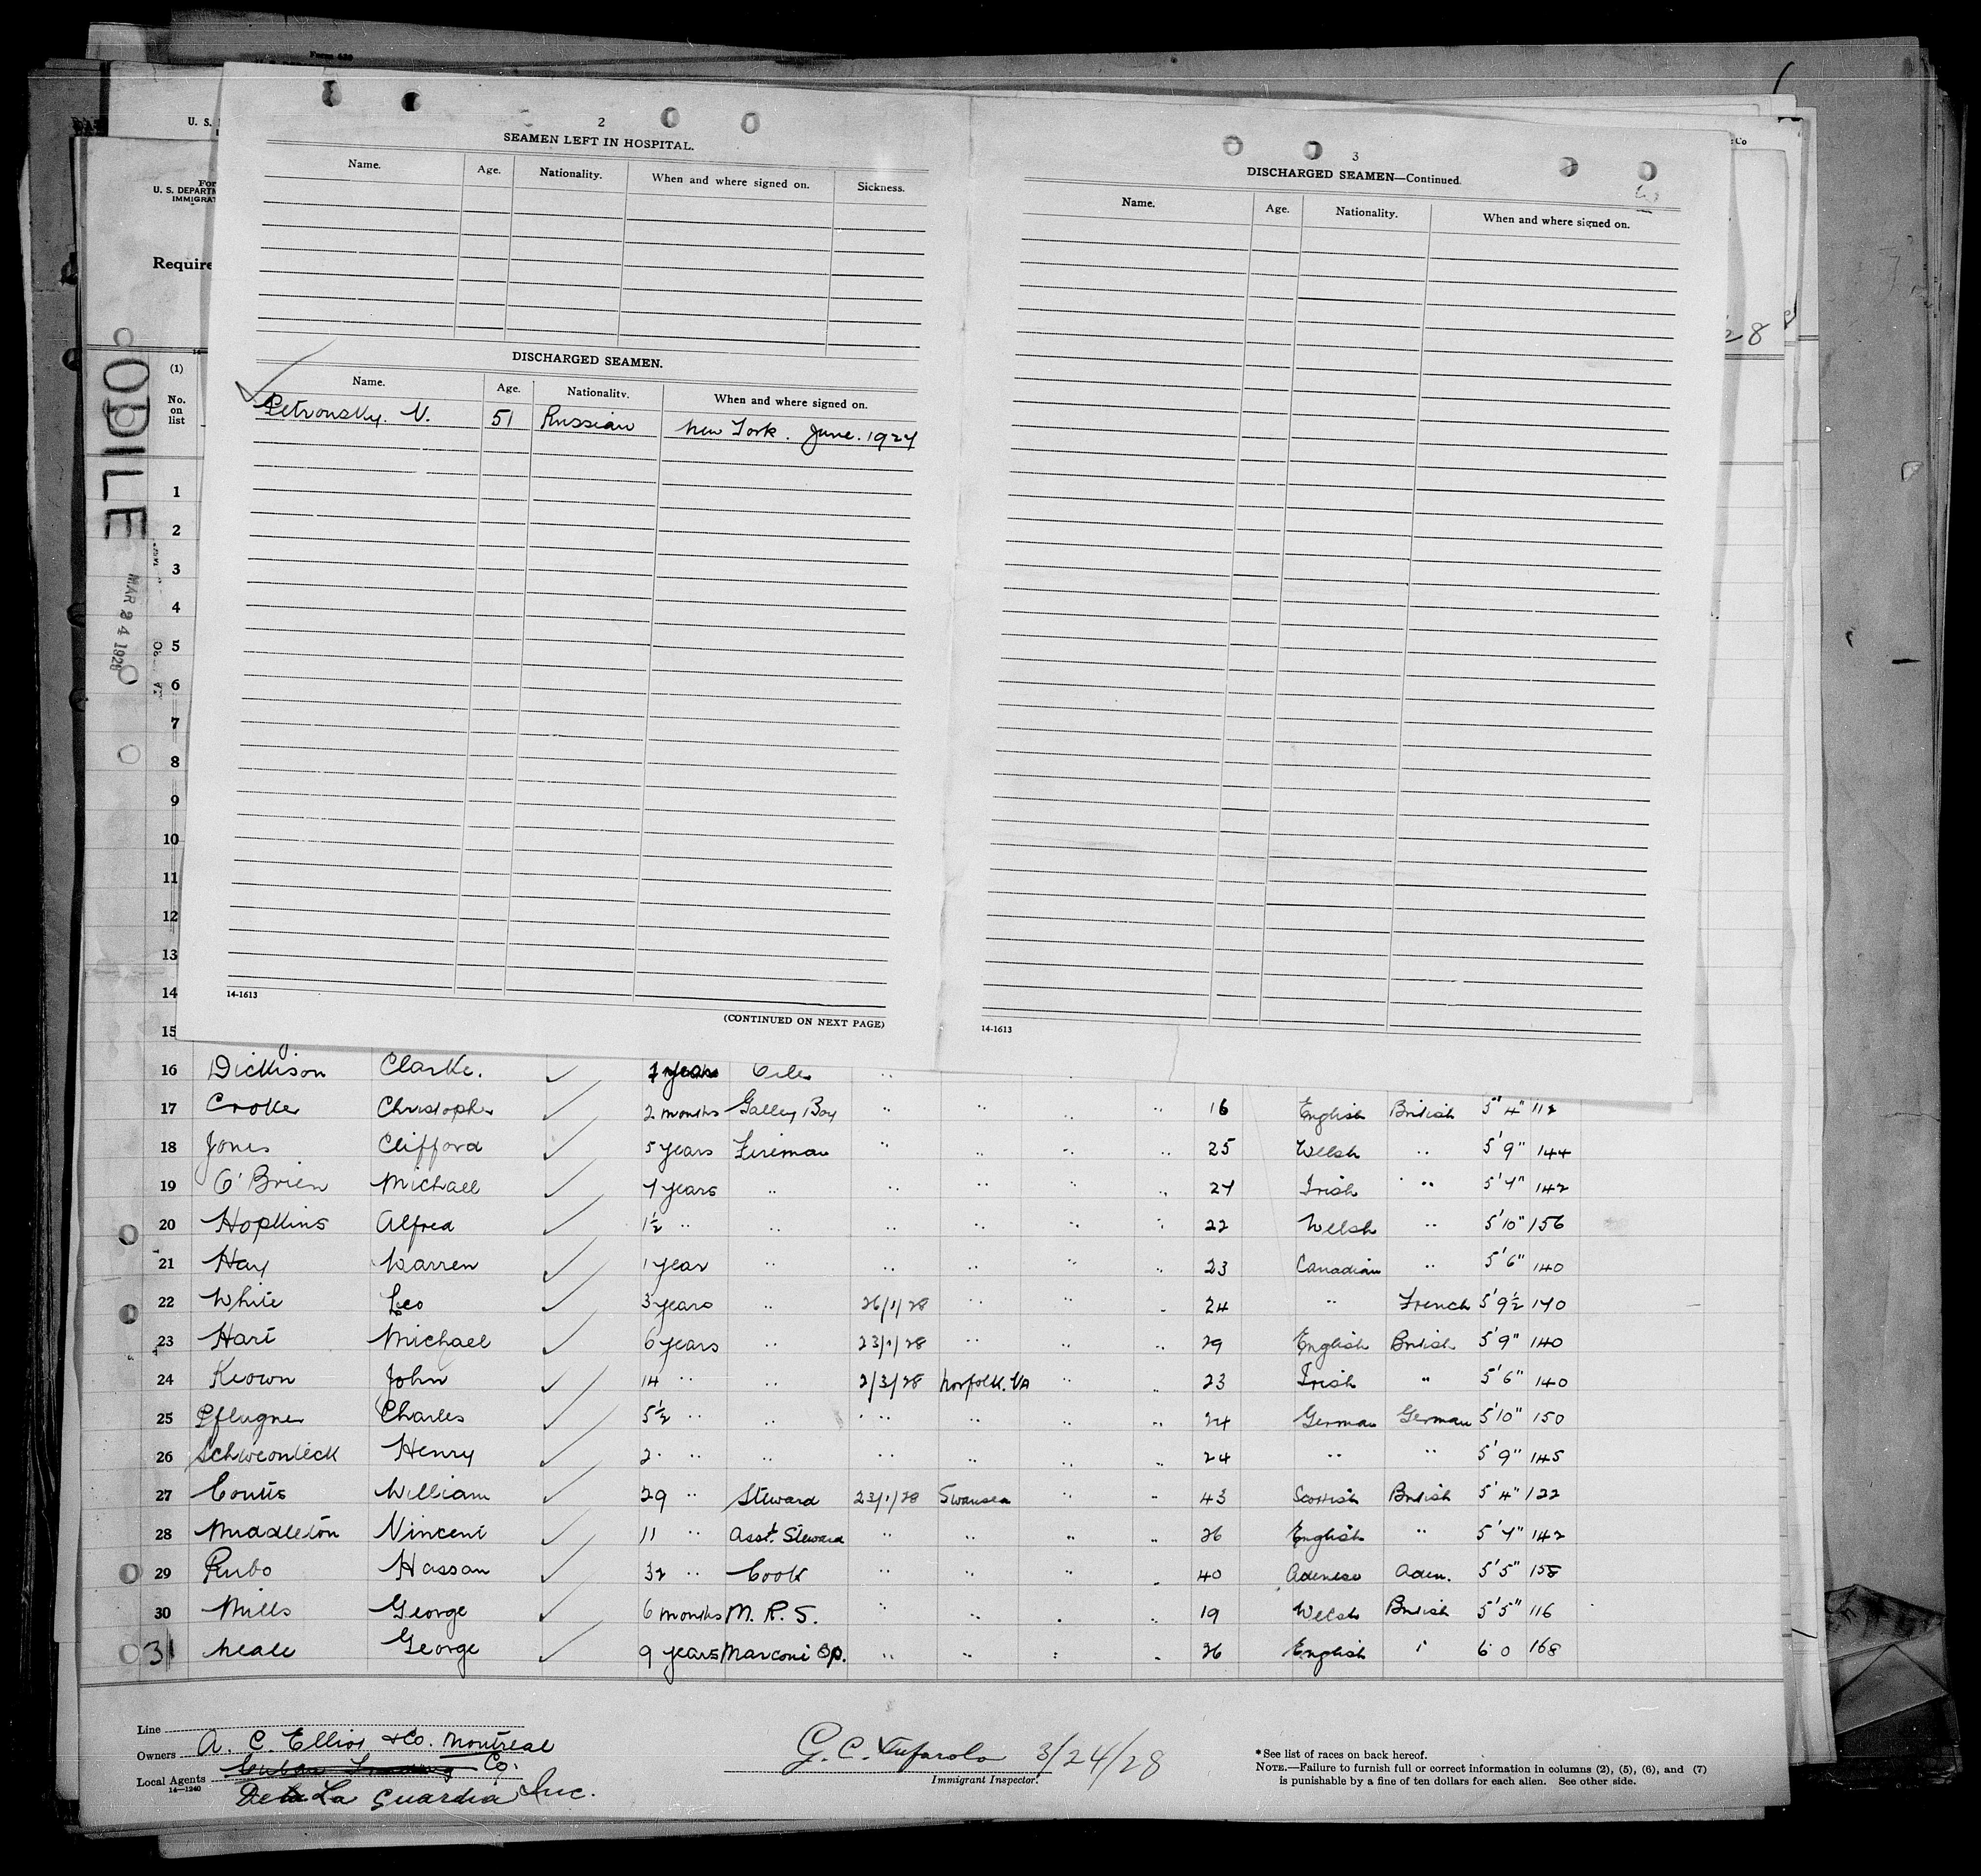 Form 680
U. S.
Co
For
U. S. DEPARTM
IMMIGRAT
Require
(1)
No.
on
list
ODILE
MAR 24 1928
28
2
SEAMEN LEFT IN HOSPITAL.
Name. Age. Nationality. When and where signed on. Sickness.
DISCHARGED SEAMEN.
Name. Age. Nationality. When and where signed on.
Petronsky. V. 51 Russian New York. June. 1927
14-1613
(CONTINUED ON NEXT PAGE)
3
DISCHARGED SEAMEN—Continued.
Name. Age. Nationality. When and where signed on.
14-1613
1
2
3
4
5
6
7
8
9
10
11
12
13
14
15
16 Dickison Clarke. ✓ years
17 Croker Christopher ✓ 2 months Galley Boy .. .. .. .. 16 English British 5' 4" 112
18 Jones Clifford ✓ 5 years Fireman .. .. .. .. 25 Welsh .. 5' 9" 144
19 O'Brien Michael ✓ 7 years .. .. .. .. .. 27 Irish .. 5' 7" 142
20 Hopkins Alfred ✓ 1½ .. .. .. .. .. .. 22 Welsh .. 5' 10" 156
21 Hay Warren ✓ 1 year .. .. .. .. .. 23 Canadian .. 5' 6" 140
22 White Leo ✓ 3 years .. 26/1/28 .. .. .. 24 .. French 5' 9½ 170
23 Hart Michael ✓ 6 years .. 23/1/28 .. .. .. 29 English British 5' 9" 140
24 Keown John ✓ 14 .. .. 2/3/28 Norfolk. VA .. .. 23 Irish " 5' 6" 140
25 Pflugner Charles ✓ 5½ .. .. .. .. .. .. 24 German German 5' 10" 150
26 Henry ✓ 2 .. .. .. .. .. .. 24 .. .. 5' 9" 145
27 Coutts William ✓ 29 .. Steward 23/1/28 Swansea .. .. 43 Scottish British 5' 4" 122
28 Middleton Vincent ✓ 11 .. Asst. Steward .. .. .. .. 26 English " 5' 7" 142
29 Rubo Hassan ✓ 32 .. Cook .. .. .. .. 40 Adenese Aden. 5' 5" 158
30 Mills George ✓ 6 months M. R. S. .. .. .. .. 19 Welsh British 5' 5" 116
31 Neale George ✓ 9 years Marconi Op. .. .. .. .. 26 English " 6' 0 168
Line
Owners A. C. Elliot & Co. Montreal
Local Agents Cuban Trading Co.
14—1240
De La Guardia Inc.
G. C. 3/24/28
Immigrant Inspector.
* See list of races on back hereof.
NOTE.—Failure to furnish full or correct information in columns (2), (5), (6), and (7)
is punishable by a fine of ten dollars for each alien. See other side.